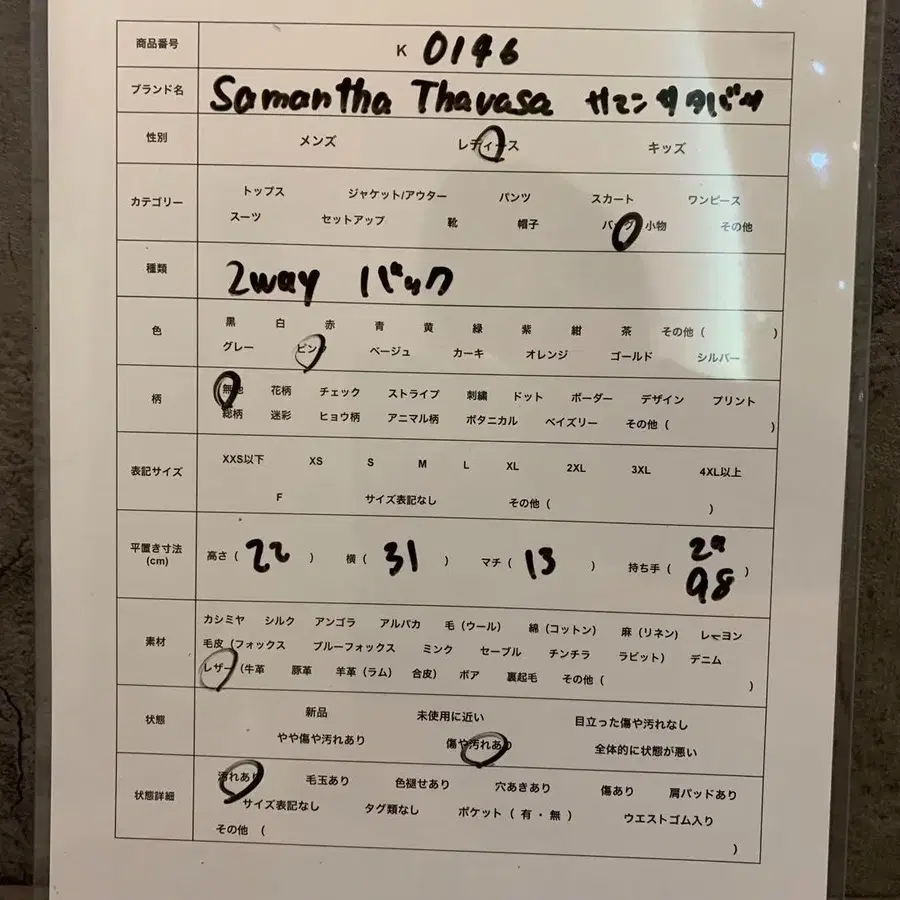 商品番号 K 0146
ブランド名 Samantha Thavasa サマンサタバサ
性別 メンズ レディース キッズ
カテゴリー
トップス ジャケット/アウター パンツ スカート ワンピース
スーツ セットアップ 靴 帽子 バッグ 小物 その他
種類 2way バック
色
黒 白 赤 青 黄 緑 紫 紺 茶 その他 ( )
グレー ピンク ベージュ カーキ オレンジ ゴールド シルバー
柄
無地 花柄 チェック ストライプ 刺繍 ドット ボーダー デザイン プリント
総柄 迷彩 ヒョウ柄 アニマル柄 ボタニカル ペイズリー その他 ( )
表記サイズ
XXS以下 XS S M L XL 2XL 3XL 4XL以上
F サイズ表記なし その他 ( )
平置き寸法
(cm)
高さ ( 22 ) 横 ( 31 ) マチ ( 13 ) 持ち手 ( 29 98 )
素材
カシミヤ シルク アンゴラ アルパカ 毛 (ウール) 綿 (コットン) 麻 (リネン) レーヨン
毛皮 (フォックス ブルーフォックス ミンク セーブル チンチラ ラビット) デニム
レザー (牛革 豚革 羊革 (ラム) 合皮) ボア 裏起毛 その他 ( )
状態
新品 未使用に近い 目立った傷や汚れなし
やや傷や汚れあり 傷や汚れあり 全体的に状態が悪い
状態詳細
汚れあり 毛玉あり 色褪せあり 穴あきあり 傷あり 肩パッドあり
サイズ表記なし タグ類なし ポケット ( 有 ・ 無 ) ウエストゴム入り
その他 ( )